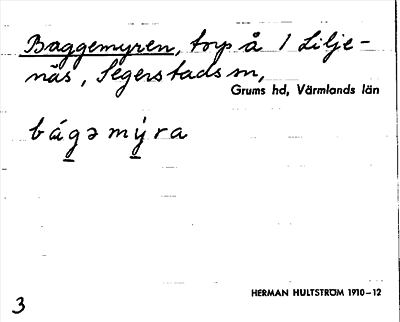 Baggemyren, torp å 1 Lilje-
näs, Segerstads sn,
Grums hd, Värmlands län
bágǝmýra
HERMAN HULTSTRÖM 1910-12
3